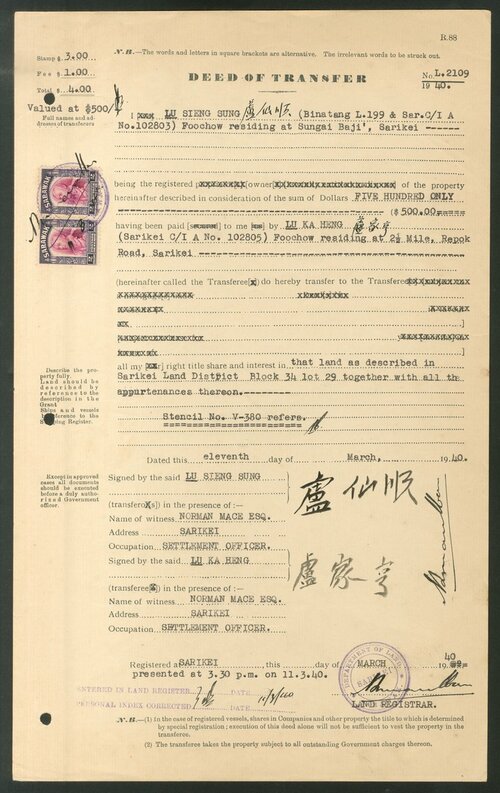 R.88
Stamp $ 3.00
Fee $ 1.00
Total $ 4.00
N.B.—The words and letters in square brackets are alternative. The irrelevant words to be struck out.
DEED OF TRANSFER
No. L.2109
1940.
Valued at $500/
Full names and addresses of transferors
I LU SIENG SUNG 盧仙順 (Binatang L.199 & Sar.C/I A
No.102803) Foochow residing at Sungai Baji', Sarikei -------
SARAWAK
SARAWAK
being the registered owner of the property
hereinafter described in consideration of the sum of Dollars FIVE HUNDRED ONLY
($500.00=====
having been paid to me by LU KA HENG 盧家亨
(Sarikei C/I A No. 102805) Foochow residing at 2½ Mile, Repok
Road, Sarikei ----------
(hereinafter called the Transferee[x]) do hereby transfer to the Transferee
Describe the property fully.
Land should be described by reference to the description in the Grant
Ships and vessels by reference to the Shipping Register.
all my right title share and interest in that land as described in
Sarikei Land District Block 34 lot 29 together with all the
appurtenances thereon.---------
Stencil No. V-380 refers.
Dated this eleventh day of March, 1940.
Except in approved cases all documents should be executed before a duly authorized Government officer
Signed by the said LU SIENG SUNG
盧仙順
(transferor[x]) in the presence of :—
Name of witness NORMAN MACE ESQ.
Address SARIKEI
Occupation SETTLEMENT OFFICER.
Signed by the said LU KA HENG
盧家亨
(transferee[x]) in the presence of :—
Name of witness NORMAN MACE ESQ.
Address SARIKEI
Occupation SETTLEMENT OFFICER.
Registered at SARIKEI, this day of MARCH 1940
presented at 3.30 pm on 11.3.40.
DEPARTMENT OF LAND
ENTERED IN LAND REGISTER DATE 11/3/40
PERSONAL INDEX CORRECTED DATE
LAND REGISTRAR.
N.B.—(1) In the case of registered vessels, shares in Companies and other property the title to which is determined
by special registration; execution of this deed alone will not be sufficient to vest the property in the
transferee.
(2) The transferee takes the property subject to all outstanding Government charges thereon.